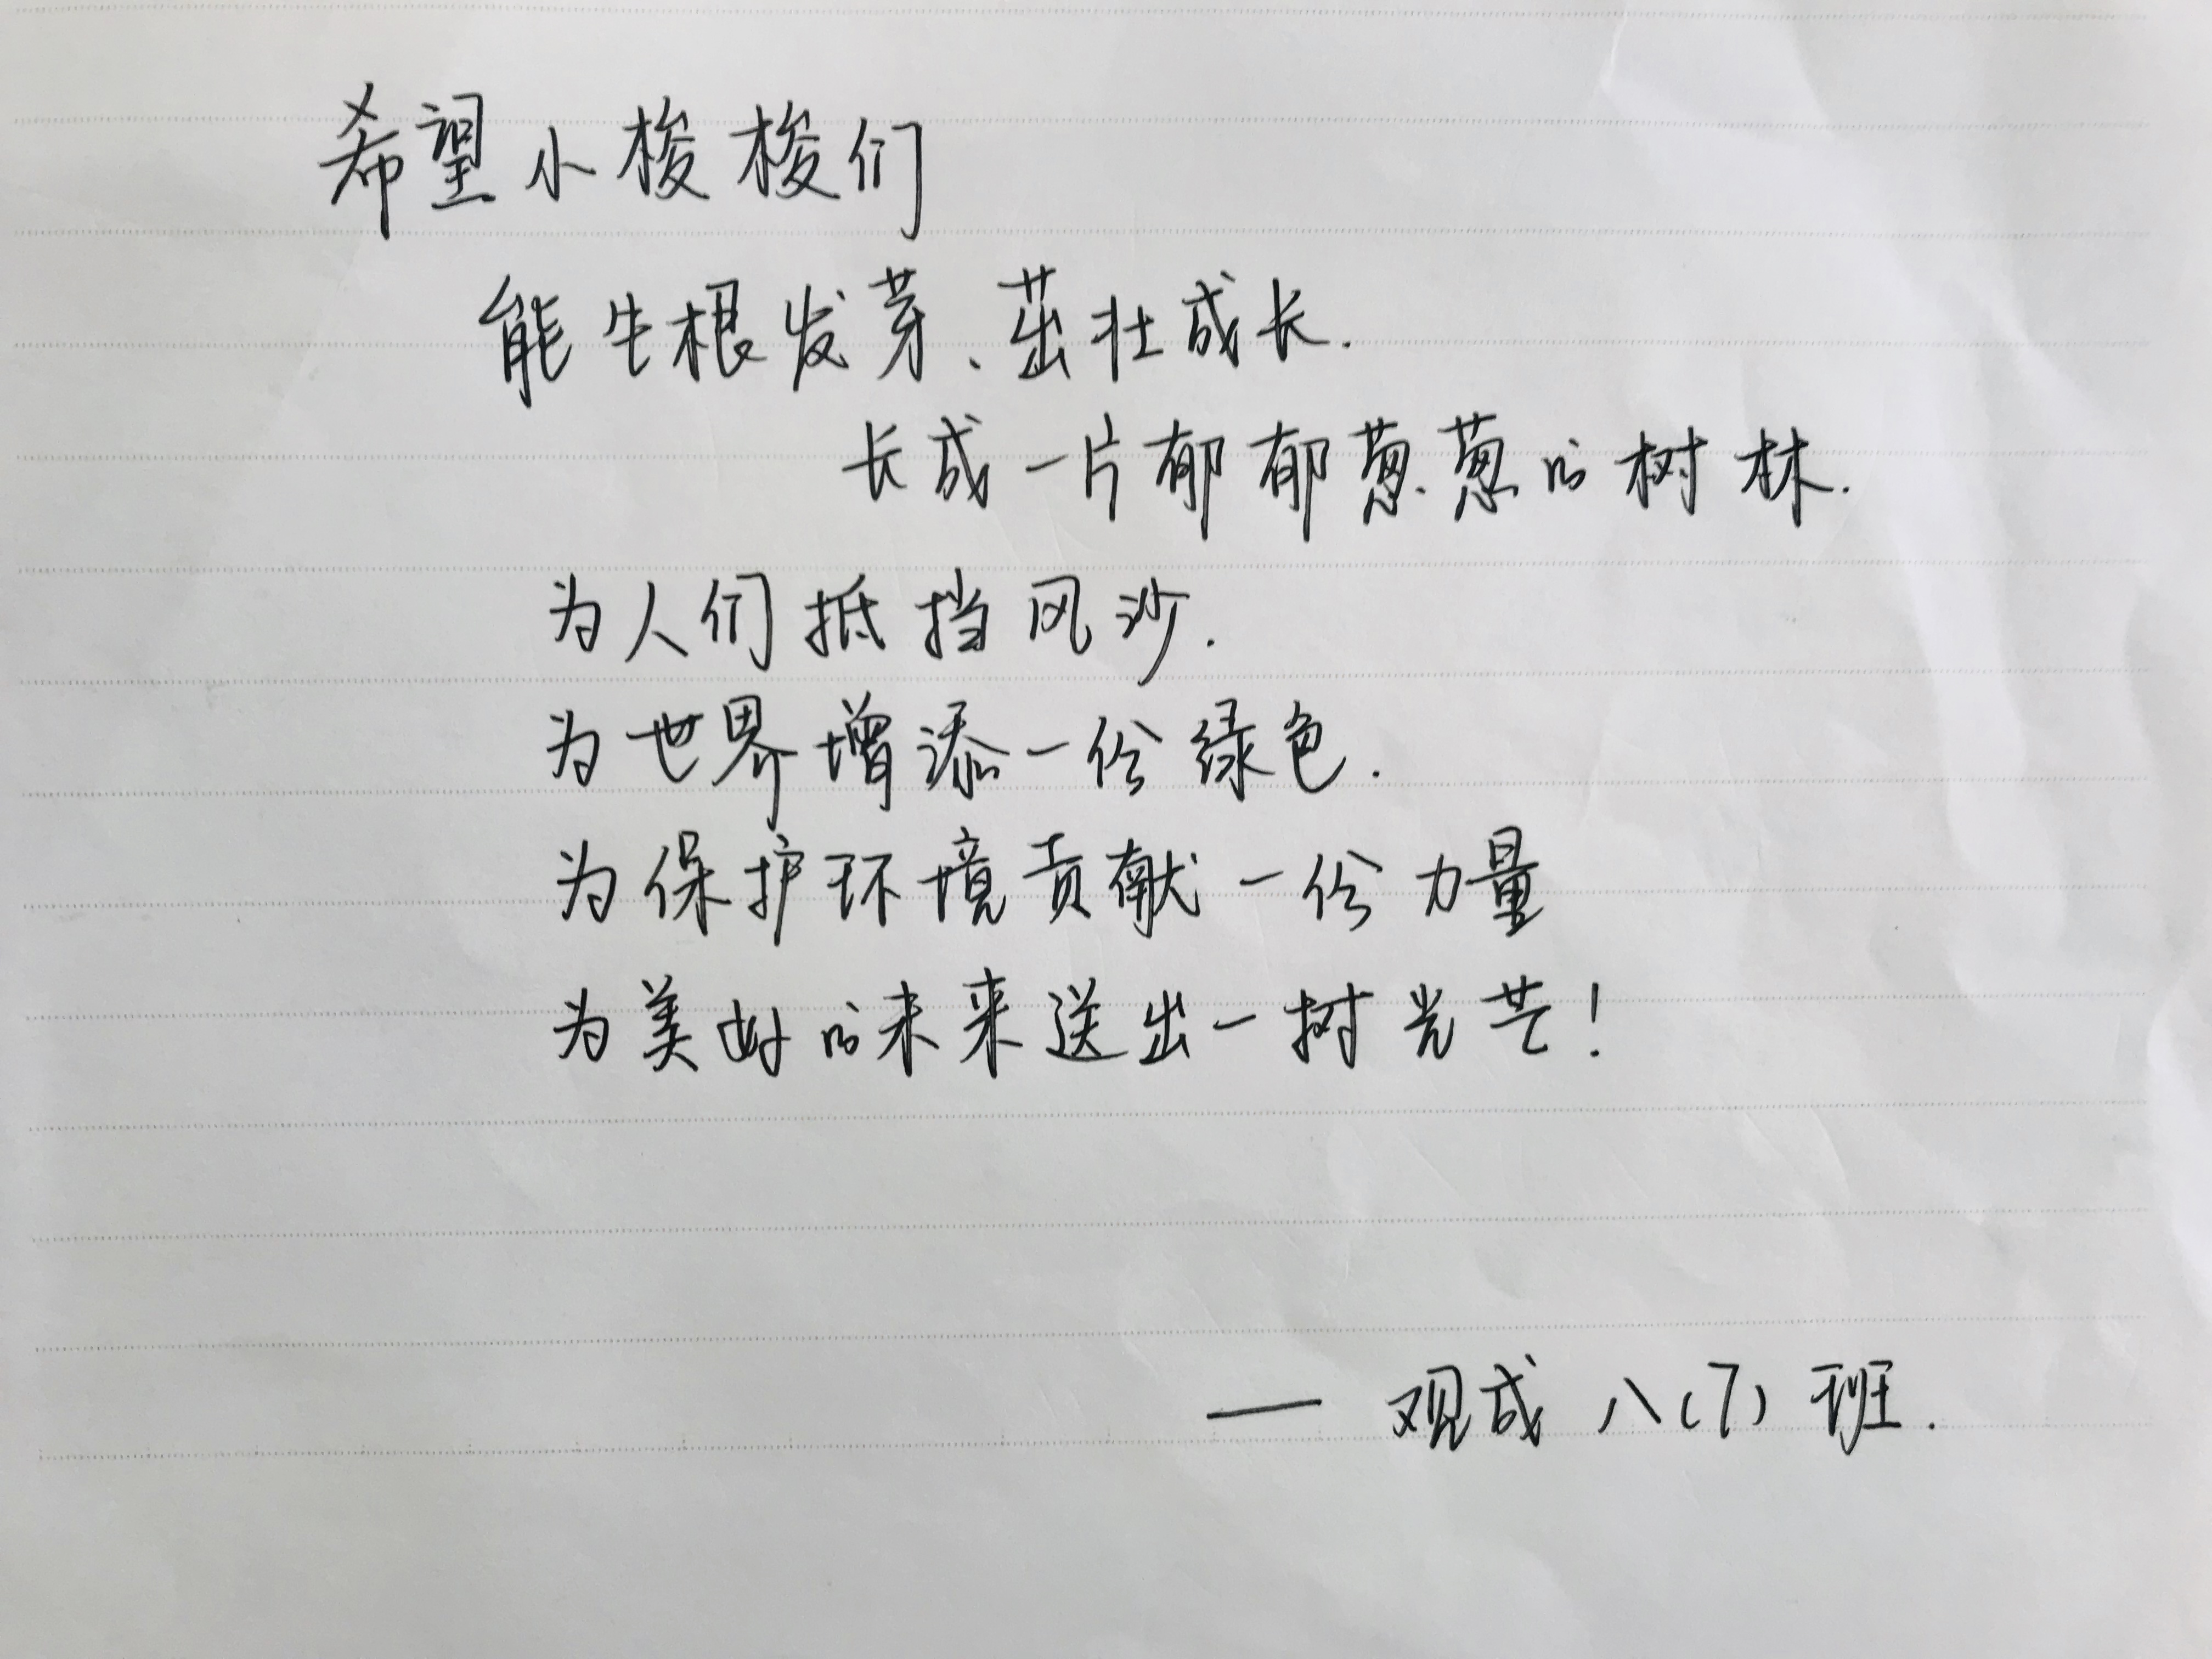 希望小梭梭们
能生根发芽、茁壮成长.
长成一片郁郁葱葱的树林.
为人们抵挡风沙.
为世界增添一份绿色.
为保护环境贡献一份力量
为美好的未来送出一树光芒!
— 观成八(7)班.